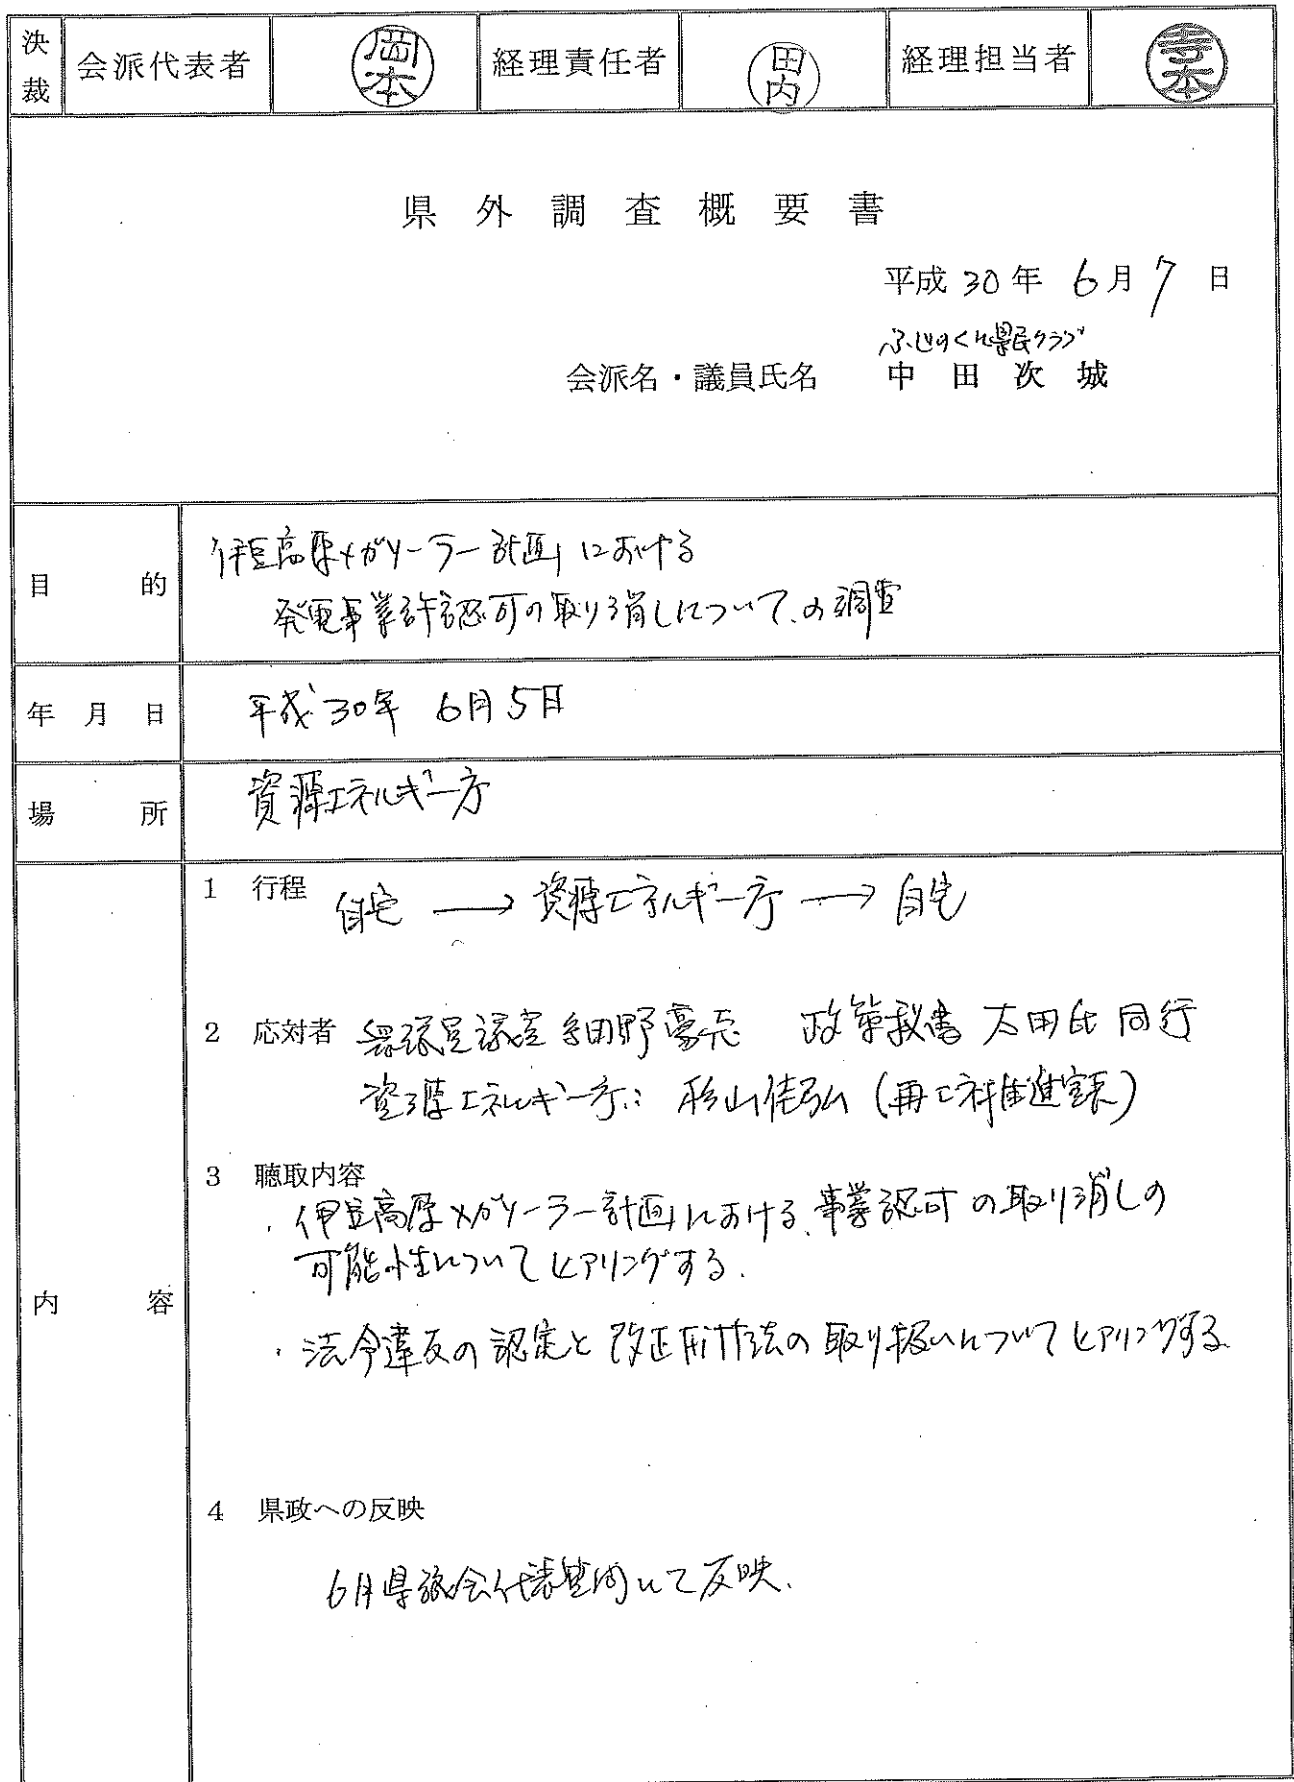 決裁 会派代表者 岡本 経理責任者 田内 経理担当者 寺本
県外調査概要書
平成30年 6月7日
ふじのくに県民クラブ
会派名・議員氏名 中田次城
目的 伊豆高原メガソーラー計画における
発電事業許認可の取り消しについての調査
年月日 平成30年 6月5日
場所 資源エネルギー庁
内容
1 行程 自宅 → 資源エネルギー庁 → 自宅
2 応対者 衆議員議室 細野豪志 政策秘書 太田氏同行
資源エネルギー庁: 杉山佳弘(再エネ推進室長)
3 聴取内容
・伊豆高原メガソーラー計画における、事業認可の取り消しの
可能性についてヒアリングする.
・法令違反の認定と改正FIT法の取り扱いについてヒアリングする
4 県政への反映
6月県議会代表質問にて反映.